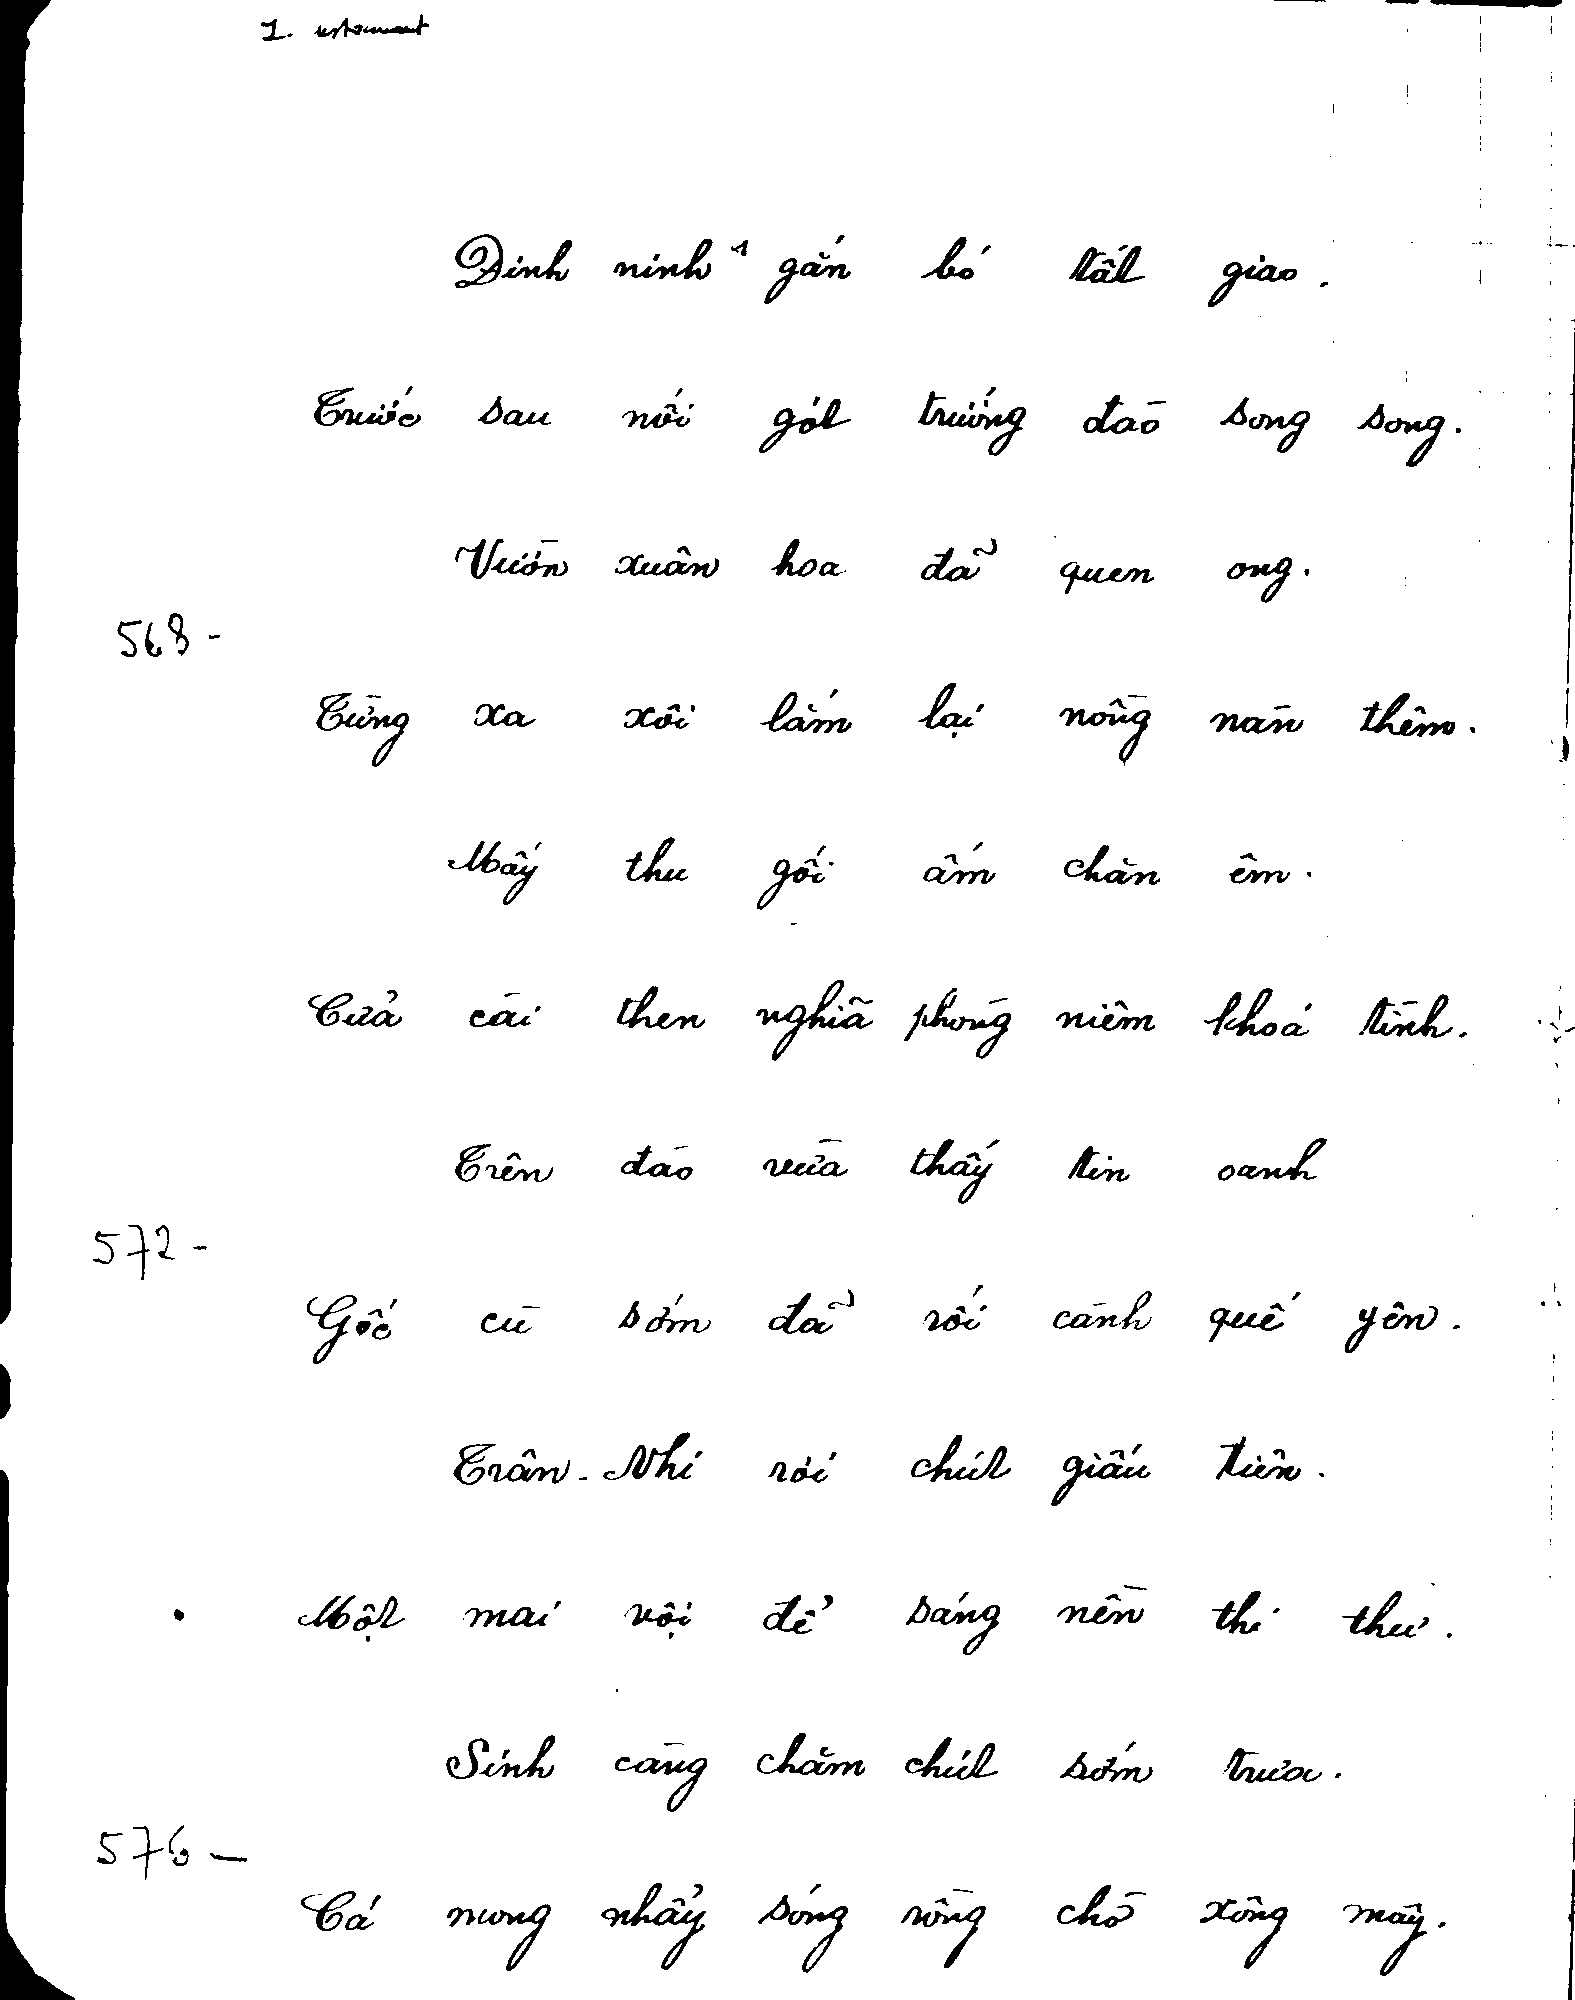 Đinh ninh¹ gắn bó tất giao.
Trước sau nối gót trướng đào song song.
Vườn xuân hoa đã quen ong.
568 -
Từng xa xôi lắm lại nồng nàn thêm.
Mấy thu gối ấm chăn êm.
Cửa cài then nghĩa phòng niêm khoá tình.
Trên đào vừa thấy tin oanh
572 -
Gốc cù sớm đã rồi cành quế yên.
Trân-Nhi rơi chút giấu tiên.
Một mai vội để sáng nền thi thư.
Sinh càng chăm chút sớm trưa.
576 -
Cá mong nhẩy sóng rồng chờ xông mây.